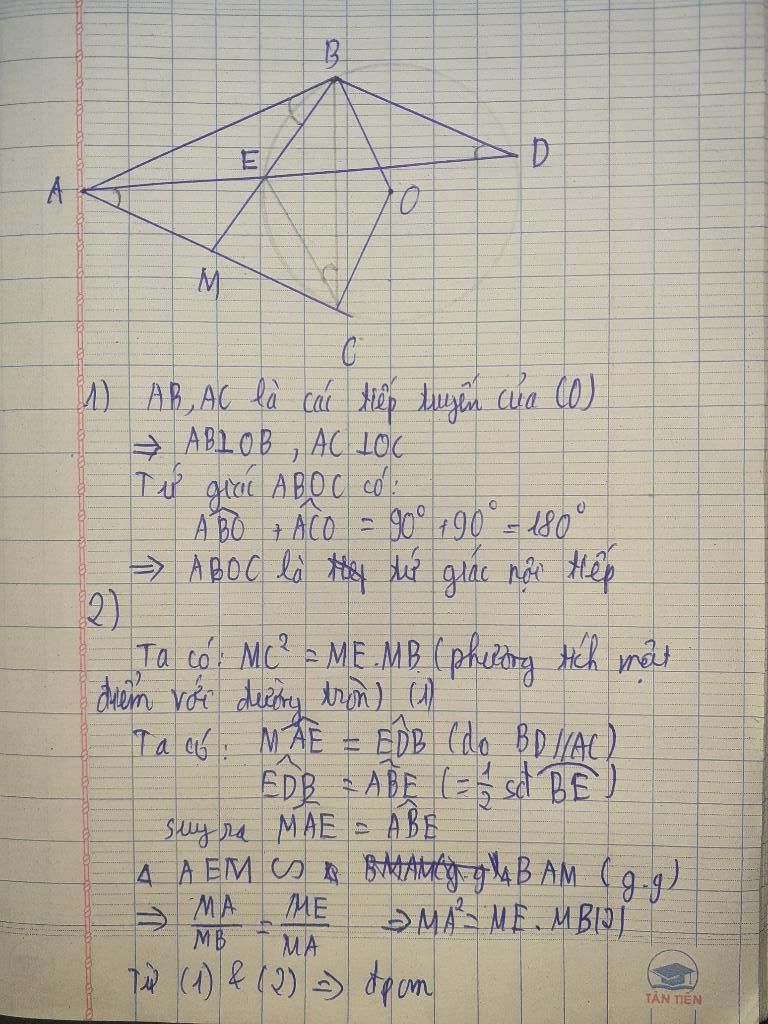 B
E
D
A
O
M
C
1) AB, AC là các tiếp tuyến của (O)
⇒ AB⊥OB, AC⊥OC
Tứ giác ABOC có:
∠ABO + ∠ACO = 90° + 90° = 180°
⇒ ABOC là tứ giác nội tiếp
2)
Ta có: MC² = ME.MB (phương tích một
điểm với đường tròn) (1)
Ta có: ∠MAE = ∠EDB (do BD//AC)
∠EDB = ∠ABE (= 1/2 sđ BE)
suy ra ∠MAE = ∠ABE
Δ AEM ∽ Δ BAM (g.g)
⇒ MA/MB = ME/MA ⇒ MA² = ME.MB (2)
Từ (1) & (2) ⇒ đpcm
TÂN TIẾN